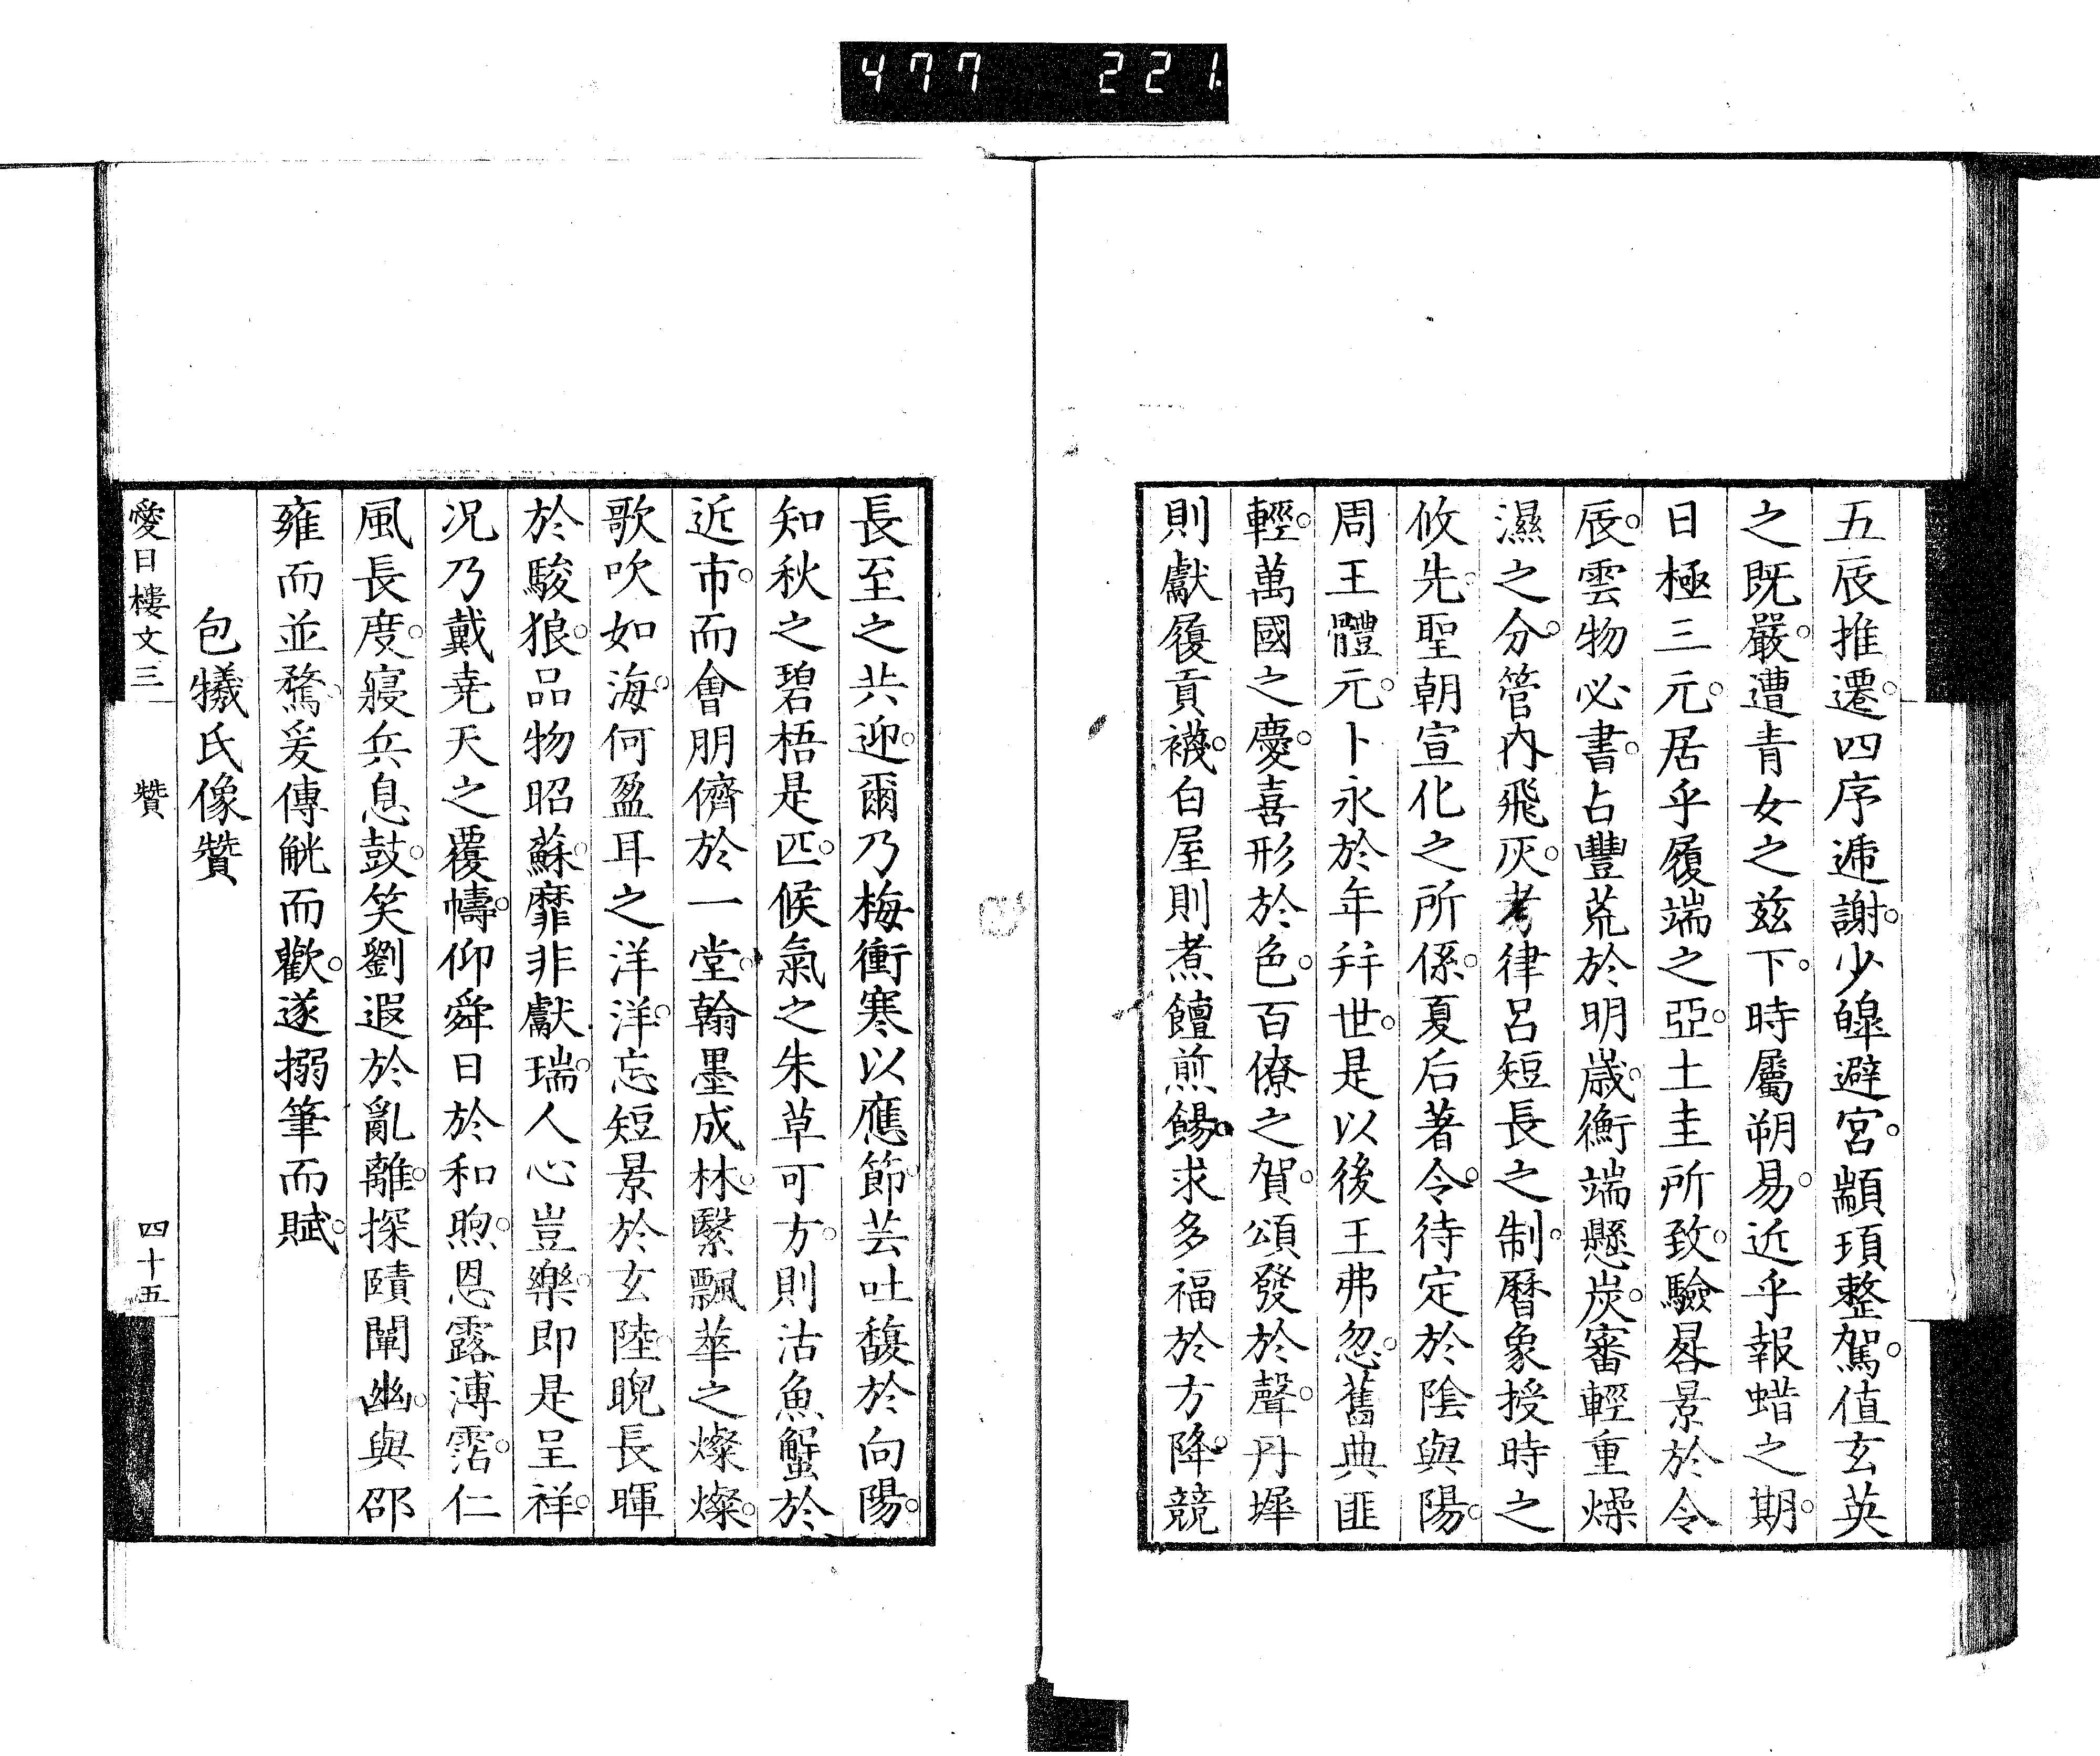 477 221
五辰推遷。四序逓謝。少皥避宮。顓頊整駕。値玄英
之既嚴。遭青女之玆下。時屬朔易。近乎報蜡之期。
日極三元。居乎履端之亞。土圭所致。驗晷景於令
辰。雲物必書。占豐荒於明歳。衡端懸炭。審輕重燥
濕之分。管內飛灰。考律呂短長之制。曆象授時之
攸先。聖朝宣化之所係。夏后著令。待定於陰與陽。
周王體元。卜永於年幷世。是以後王弗忽。舊典匪
輕。萬國之慶。喜形於色。百僚之賀。頌發於聲。丹墀
則獻履貢襪。白屋則煮饘煎餳。求多福於方降。競
長至之共迎。爾乃梅衝寒以應節。芸吐馥於向陽。
知秋之碧梧是匹。候氣之朱草可方。則沽魚蟹於
近市。而會朋儕於一堂。翰墨成林。繄飄華之燦燦。
歌吹如海。何盈耳之洋洋。忘短景於玄陸。睨長暉
於駿狼。品物昭蘇。靡非獻瑞。人心豈樂。即是呈祥。
況乃戴尭天之覆幬。仰舜日於和煦。恩露溥霑。仁
風長度。寢兵息鼓。笑劉遐於亂離。探賾闡幽。與邵
雍而並騖。爰傳觥而歡。遂搦筆而賦。
包犧氏像贊
愛日樓文三 贊 四十五